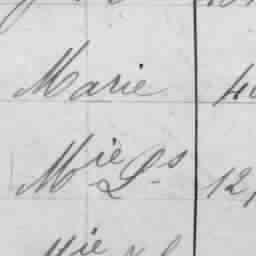 Marie
Mie Ls 12,